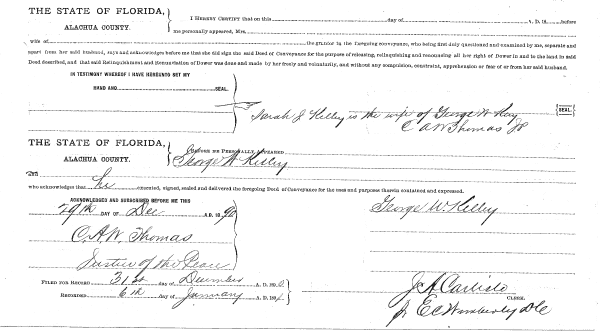 THE STATE OF FLORIDA,
ALACHUA COUNTY.
I HEREBY CERTIFY that on this day of A. D. 18 before
me personally appeared, Mrs.
wife of the grantor in the foregoing conveyance, who being first duly questioned and examined by me, separate and
apart from her said husband, says and acknowledges before me that she did sign the said Deed of Conveyance for the purpose of releasing, relinquishing and renouncing all her right of Dower in and to the land in said
Deed described, and that said Relinquishment and Renunciation of Dower was done and made by her freely and voluntarily, and without any compulsion, constraint, apprehension or fear of or from her said husband.
IN TESTIMONY WHEREOF I HAVE HEREUNTO SET MY
HAND AND SEAL.
Sarah J Kelley is the wife of George W {SEAL.}
C A W Thomas JP
THE STATE OF FLORIDA,
ALACHUA COUNTY.
BEFORE ME PERSONALLY APPEARED
George W Kelley
who acknowledges that he executed, signed, sealed and delivered the foregoing Deed of Conveyance for the uses and purposes therein contained and expressed.
ACKNOWLEDGED AND SUBSCRIBED BEFORE ME THIS
29th DAY OF Dec A.D. 18 90
George W. Kelley
C. A. W. Thomas
Justice of the Peace
FILED FOR RECORD 31st day of December A. D. 18
RECORDED 6th day of January A. D. 18
J. A. Carlisle
CLERK.
E C Wimberly DC